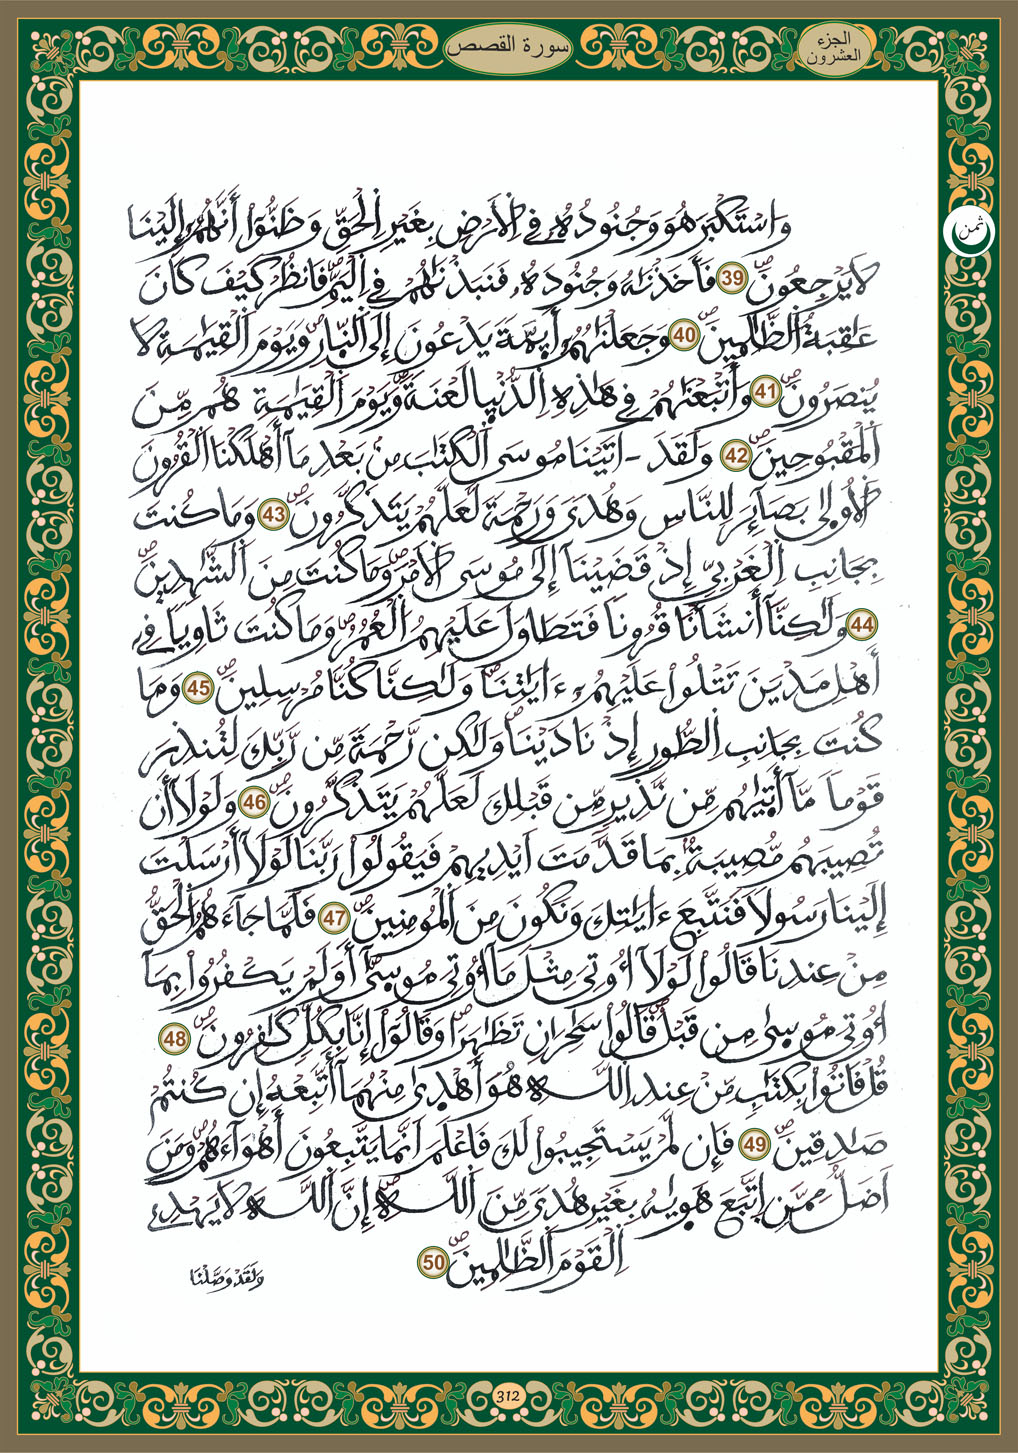 الجزء العشرون
سورة القصص
ثمن
وَاسْتَكْبَرَ هُوَ وَجُنُودُهُۥ فِے اِلَارْضِ بِغَيْرِ اِلْحَقِّ وَظَنُّوٓاْ أَنَّهُمُۥٓ إِلَيْنَا
لَا يَرْجِعُونَۖ 39 فَأَخَذْنَٰهُ وَجُنُودَهُۥ فَنَبَذْنَٰهُمْ فِے اِلْيَمِّۖ فَانظُرْ كَيْفَ كَانَ
عَٰقِبَةُ اُلظَّٰلِمِينَۖ 40 وَجَعَلْنَٰهُمُۥٓ أَيِمَّةٗ يَدْعُونَ إِلَى اَلنّ۪ارِۖ وَيَوْمَ اَلْقِيَٰمَةِ لَا
يُنصَرُونَۖ 41 وَأَتْبَعْنَٰهُمْ فِے هَٰذِهِ اِلدُّنْي۪ا لَعْنَةٗۖ وَيَوْمَ اَلْقِيَٰمَةِ هُم مِّنَ
اَلْمَقْبُوحِينَۖ 42 وَلَقَدَ اٰتَيْنَا مُوسَى اَلْكِتَٰبَ مِنۢ بَعْدِ مَآ أَهْلَكْنَا اَلْقُرُونَ
اَلُاول۪يٰ بَصَآئِرَ لِلنَّاسِ وَهُدىٗ وَرَحْمَةٗ لَّعَلَّهُمْ يَتَذَكَّرُونَۖ 43 وَمَا كُنتَ
بِجَانِبِ اِلْغَرْبِيِّ إِذْ قَضَيْنَآ إِلَىٰ مُوسَى اَلَامْرَۖ وَمَا كُنتَ مِنَ اَلشَّٰهِدِينَۖ
44 وَلَٰكِنَّآ أَنشَأْنَا قُرُوناٗ فَتَطَاوَلَ عَلَيْهِمُ اُلْعُمُرُۖ وَمَا كُنتَ ثَاوِياٗ فِےٓ
أَهْلِ مَدْيَنَ تَتْلُواْ عَلَيْهِمُۥٓ ءَايَٰتِنَاۖ وَلَٰكِنَّا كُنَّا مُرْسِلِينَۖ 45 وَمَا
كُنتَ بِجَانِبِ اِلطُّورِ إِذْ نَادَيْنَاۖ وَلَٰكِن رَّحْمَةٗ مِّن رَّبِّكَ لِتُنذِرَ
قَوْماٗ مَّآ أَت۪يٰهُم مِّن نَّذِيرٖ مِّن قَبْلِكَ لَعَلَّهُمْ يَتَذَكَّرُونَۖ 46 وَلَوْلَآ أَن
تُصِيبَهُم مُّصِيبَةُۢ بِمَا قَدَّمَتَ اَيْدِيهِمْ فَيَقُولُواْ رَبَّنَا لَوْلَآ أَرْسَلْتَ
إِلَيْنَا رَسُولاٗ فَنَتَّبِعَ ءَايَٰتِكَ وَنَكُونَ مِنَ اَلْمُومِنِينَۖ 47 فَلَمَّا جَآءَهُمُ اُلْحَقُّ
مِنْ عِندِنَا قَالُواْ لَوْلَآ أُوتِيَ مِثْلَ مَآ أُوتِيَ مُوس۪ىٰٓۖ أَوَلَمْ يَكْفُرُواْ بِمَآ
أُوتِيَ مُوس۪ىٰ مِن قَبْلُۖ قَالُواْ سَٰحِرَٰنِ تَظَّٰهَرَاۖ وَقَالُوٓاْ إِنَّا بِكُلّٖ كَٰفِرُونَۖ 48
قُلْ فَاتُواْ بِكِتَٰبٖ مِّنْ عِندِ اِللَّهِ هُوَ أَهْد۪ىٰ مِنْهُمَآ أَتَّبِعْهُ إِن كُنتُمْ
صَٰدِقِينَۖ 49 فَإِن لَّمْ يَسْتَجِيبُواْ لَكَ فَاعْلَمَ اَنَّمَا يَتَّبِعُونَ أَهْوَآءَهُمْۖ وَمَنَ
اَضَلُّ مِمَّنِ اِتَّبَعَ هَو۪يٰهُ بِغَيْرِ هُدىٗ مِّنَ اَللَّهِۖ إِنَّ اَللَّهَ لَا يَهْدِے
اِلْقَوْمَ اَلظَّٰلِمِينَۖ 50
وَلَقَدْ وَصَّلْنَا
312